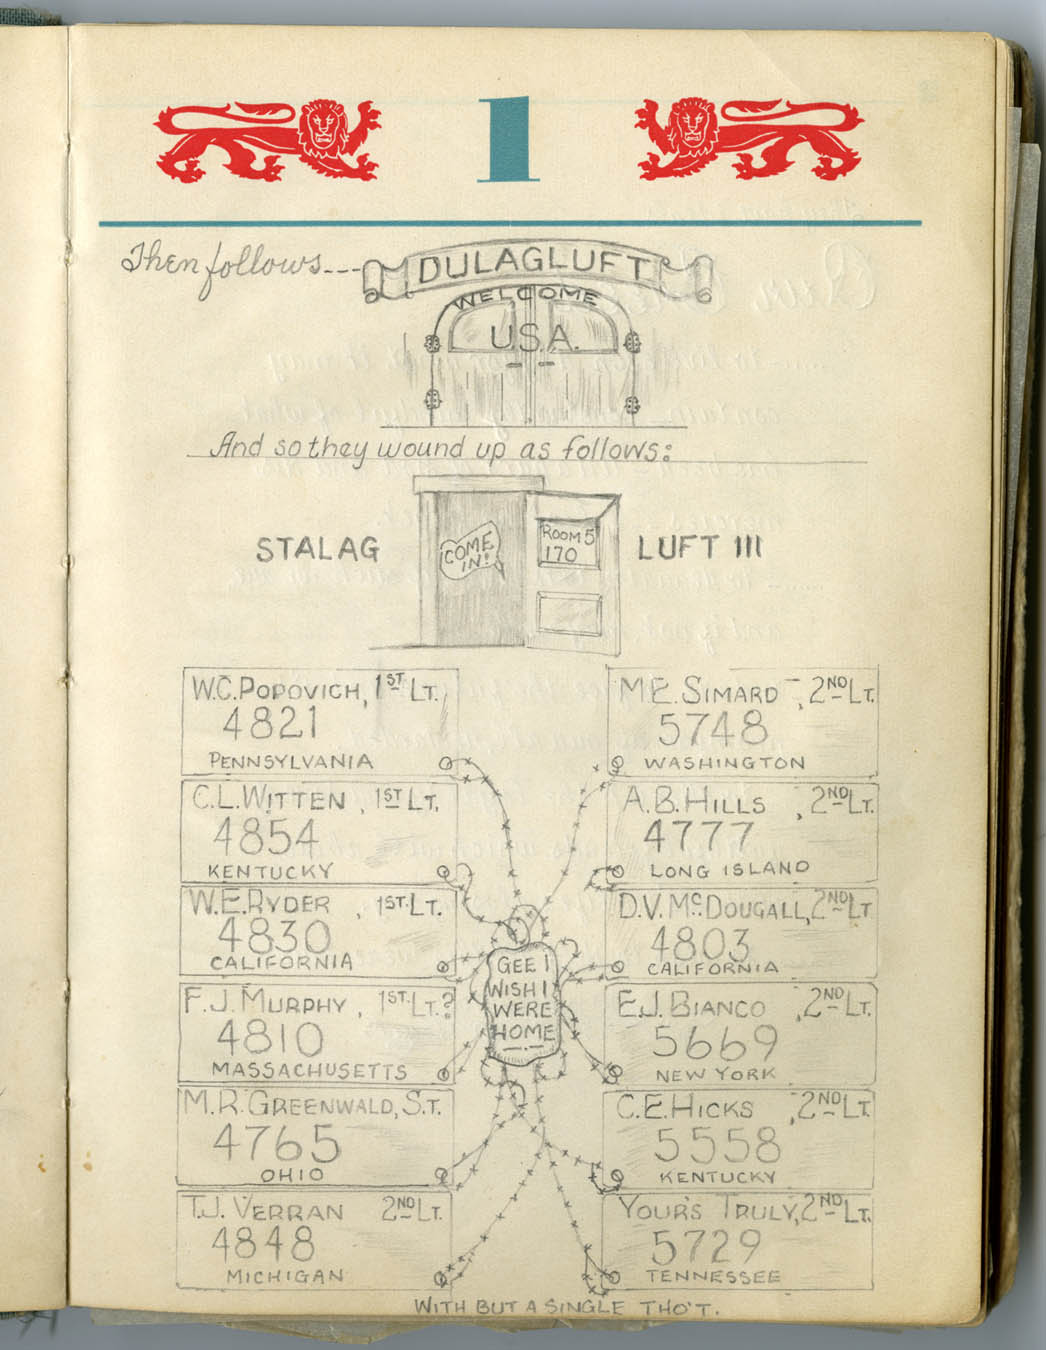 1
Then follows---
DULAGLUFT
WELCOME
U.S.A.
And so they wound up as follows:
STALAG
COME
IN!
ROOM 5
170
LUFT III
W.C. POPOVICH, 1ST LT.
4821
PENNSYLVANIA
C.L. WITTEN, 1ST LT.
4854
KENTUCKY
W.E. RYDER, 1ST. LT.
4830
CALIFORNIA
F.J. MURPHY, 1ST. LT.?
4810
MASSACHUSETTS
M.R. GREENWALD, S.T.
4765
OHIO
T.J. VERRAN 2ND LT.
4848
MICHIGAN
GEE I
WISH I
WERE
HOME
M.E. SIMARD, 2ND LT.
5748
WASHINGTON
A.B. HILLS, 2ND LT.
4777
LONG ISLAND
D.V. McDOUGALL, 2ND LT
4803
CALIFORNIA
E.J. BIANCO, 2ND LT.
5669
NEW YORK
C.E. HICKS, 2ND LT.
5558
KENTUCKY
YOUR'S TRULY, 2ND LT.
5729
TENNESSEE
WITH BUT A SINGLE THO'T.